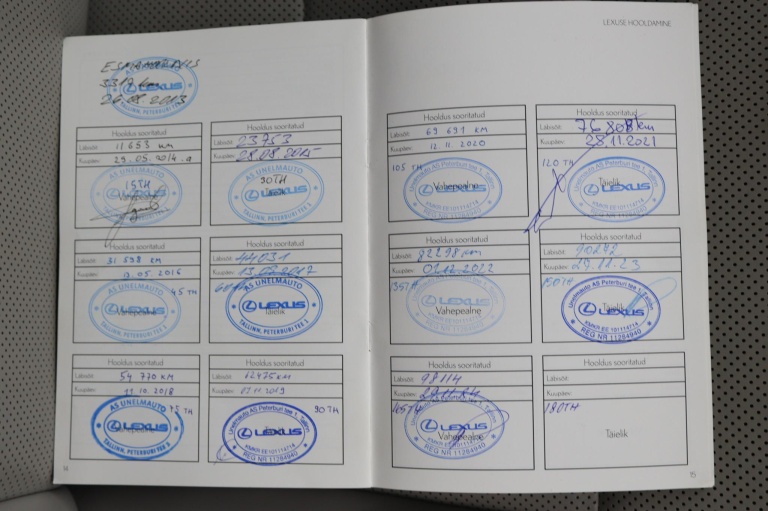 ESMAHOOLDUS
3317 km
26.08.2013
LEXUS
TALLINN, PETERBURI TEE
Hooldus sooritatud
Läbisõit: 11 653 km
Kuupäev: 29.05.2014.a
15TH
LEXUS
Vahepealne
TALLINN, PETERBURI TEE
Hooldus sooritatud
Läbisõit: 23753
Kuupäev: 28.08.2015
AS UNELMAUTO
30TH
LEXUS
TALLINN, PETERBURI TEE
Hooldus sooritatud
Läbisõit: 31 598 km
Kuupäev: 9.05.2016
45 TH
LEXUS
Vahepealne
TALLINN, PETERBURI TEE
Hooldus sooritatud
Läbisõit: 44031
Kuupäev: 13.06.2017
LEXUS
Täielik
TALLINN, PETERBURI TEE
Hooldus sooritatud
Läbisõit: 54 770 KM
Kuupäev: 11.10.2018
AS UNELMAUTO
75 TH
LEXUS
TALLINN, PETERBURI TEE
Hooldus sooritatud
Läbisõit: 62475KM
Kuupäev:
90 TH
Unelmauto AS Peterburi tee 1, Tallinn
LEXUS
KMKR EE 101114714
REG NR 11284940
14
LEXUSE HOOLDAMINE
Hooldus sooritatud
Läbisõit: 69 691 KM
Kuupäev: 12.11.2020
105 TH
Unelmauto AS Peterburi tee 1, Tallinn
LEXUS
Vahepealne
KMKR EE 101114714
REG NR 11284940
Hooldus sooritatud
Läbisõit: 76808km
Kuupäev: 28.11.2021
120 TH
Unelmauto AS Peterburi tee 1, Tallinn
Täielik
LEXUS
KMKR EE 101114714
REG NR 11284940
Hooldus sooritatud
Läbisõit: 82298km
Kuupäev: 01.12.2022
135TH
LEXUS
Vahepealne
Hooldus sooritatud
Läbisõit: 90242
Kuupäev: 29.11.23
150TH
Unelmauto AS Peterburi tee 1, Tallinn
Täielik
LEXUS
KMKR EE 101114714
REG NR 11284940
Hooldus sooritatud
Läbisõit: 98114
Kuupäev:
165TH
LEXUS
Vahepealne
KMKR EE 101114714
REG NR 11284940
Hooldus sooritatud
Läbisõit:
Kuupäev:
180TH
Täielik
15